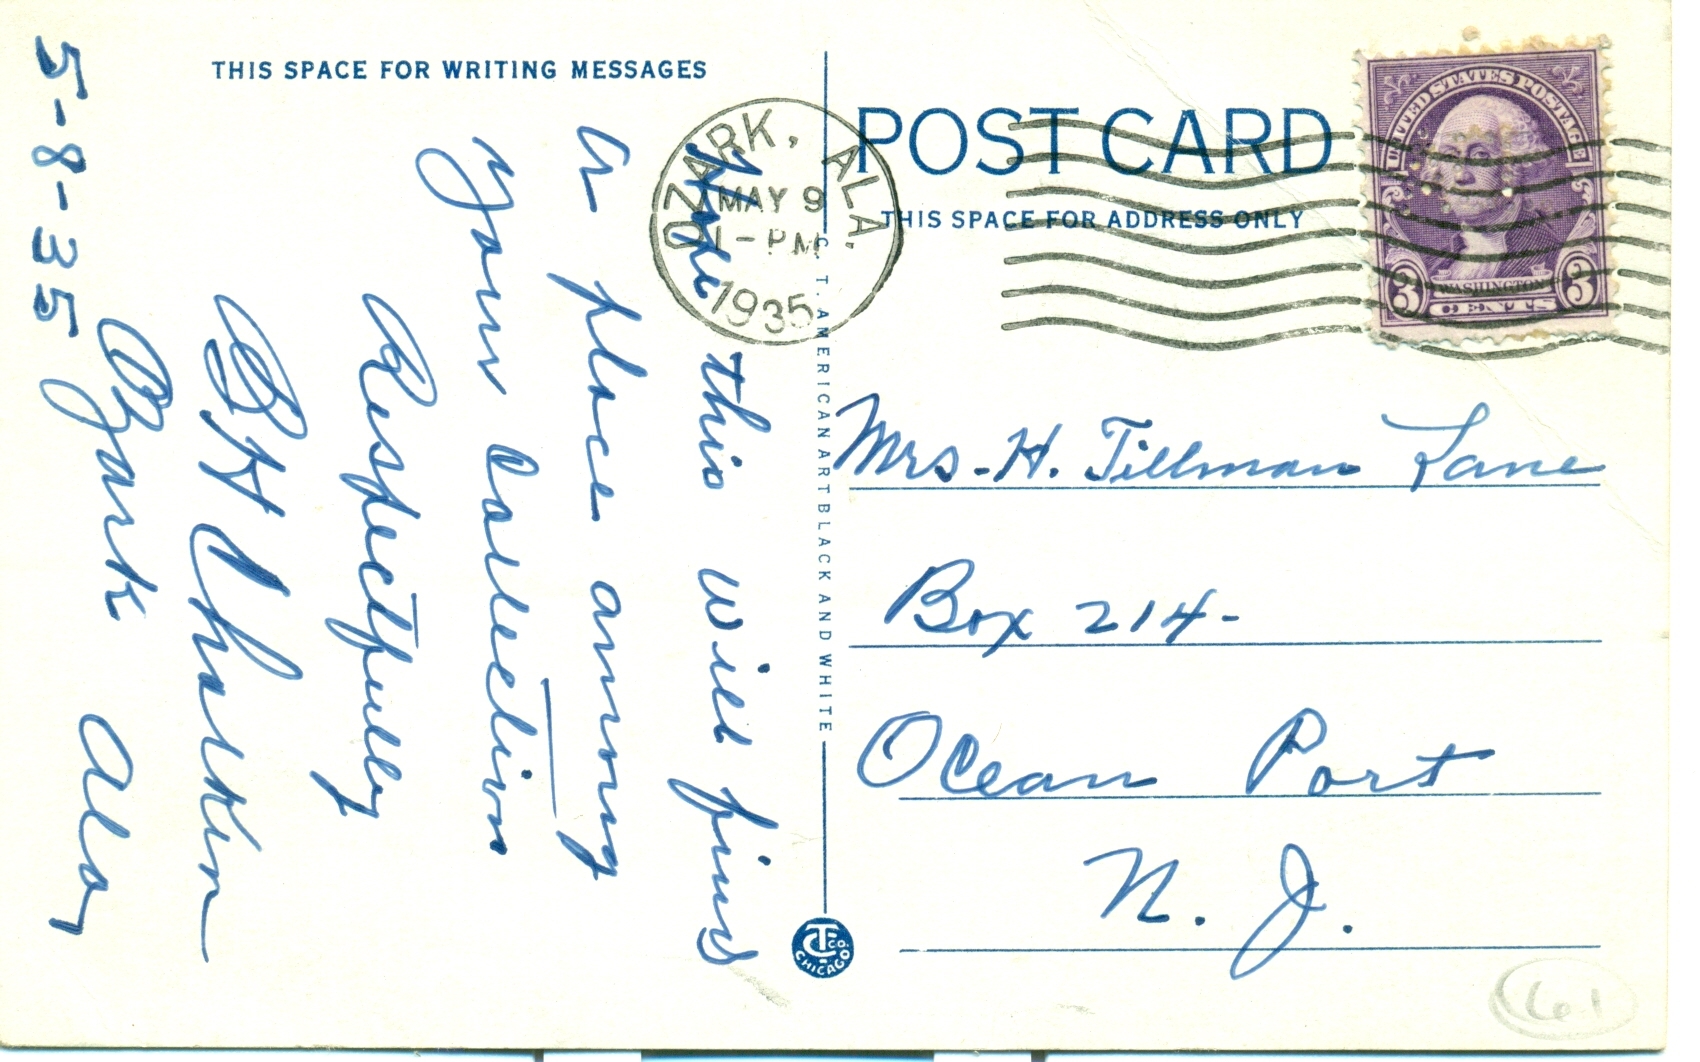 THIS SPACE FOR WRITING MESSAGES
Hope this will find
a place among
your Collection
Respectfully
Ozark Ala
5-8-35
OZARK, ALA.
MAY 9
1-PM
1935
C. T. AMERICAN ART BLACK AND WHITE
CTCO.
CHICAGO
POST CARD
THIS SPACE FOR ADDRESS ONLY
UNITED STATES POSTAGE
WASHINGTON
3 CENTS 3
Mrs. H. Tillman Lane
Box 214-
Ocean Port
N. J.
61